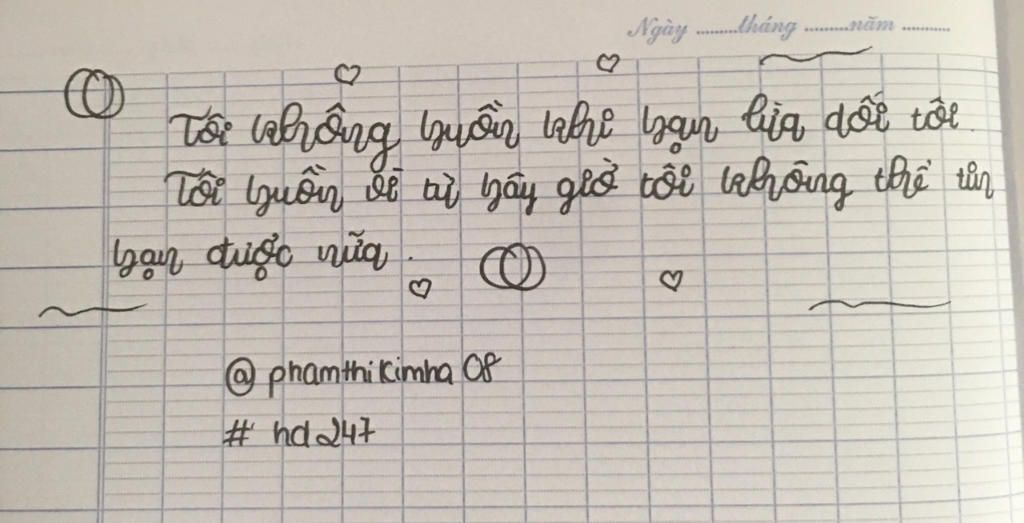 Ngày ........tháng .........năm ..........
Tôi không buồn khi bạn lừa dối tôi.
Tôi buồn vì từ bây giờ tôi không thể tin
bạn được nữa.
@phamthikimha08
# hd247